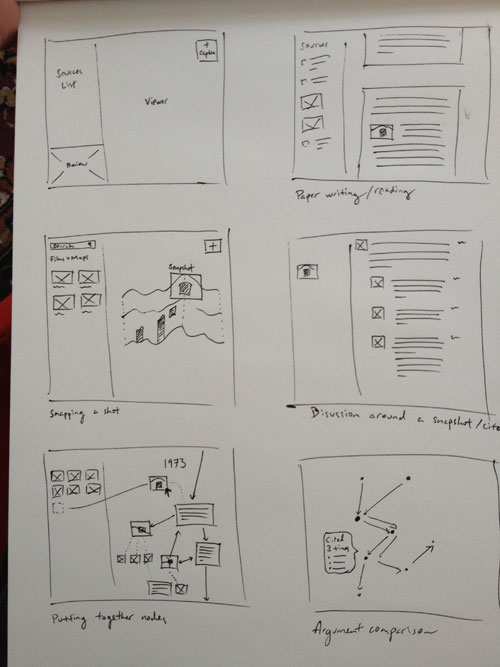 Sources
List
Viewer
+
Capture
Preview
Sources
Paper writing/reading
Search
Films > Maps
+
Snapshot
Snapping a shot
Disussion around a snapshot/cite
1973
Putting together nodes
Cited
3 times
Argument comparison